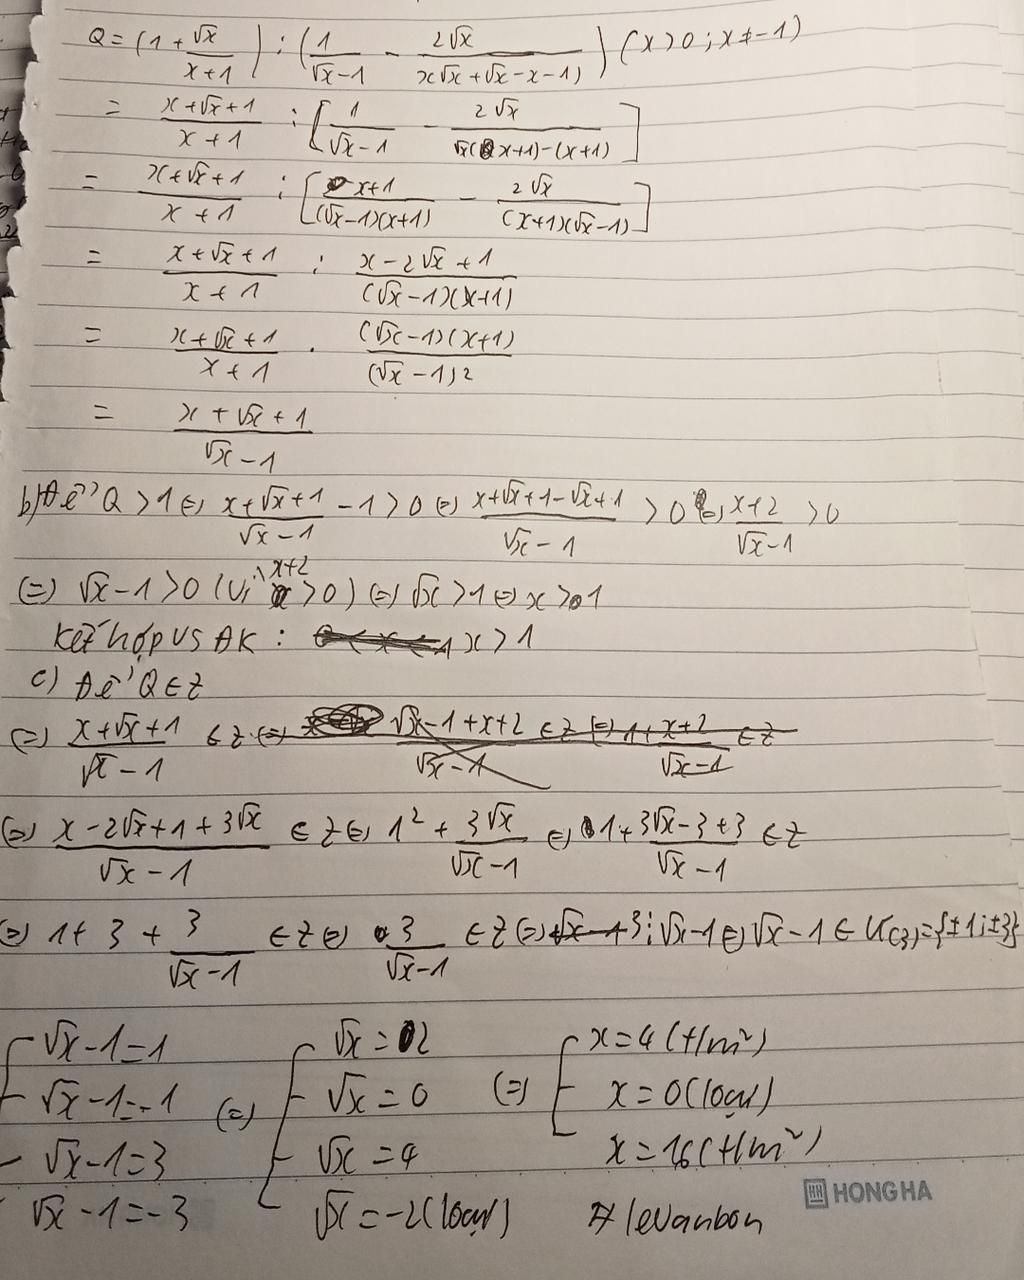 Q = (1 + √x/(x+1)) : (1/(√x-1) - 2√x/(x√x+√x-x-1)) (x>0; x≠-1)
= (x+√x+1)/(x+1) : [1/(√x-1) - 2√x/(√x(x+1)-(x+1))]
= (x+√x+1)/(x+1) : [(x+1)/((√x-1)(x+1)) - 2√x/((x+1)(√x-1))]
= (x+√x+1)/(x+1) : (x-2√x+1)/((√x-1)(x+1))
= (x+√x+1)/(x+1) . ((√x-1)(x+1))/(√x-1)²
= (x+√x+1)/(√x-1)
b) Để Q >1 (=) (x+√x+1)/(√x-1) - 1 >0 (=) (x+√x+1-√x+1)/(√x-1) >0 (=) (x+2)/(√x-1) >0
(=) √x-1 >0 (Vì x+2 >0) (=) √x >1 (=) x >1
Kết hợp vs ĐK : x > 1
c) Để Q ∈ Z
(=) (x+√x+1)/(√x-1) ∈ Z (=) (√x-1+x+2)/(√x-1) ∈ Z (=) 1+(x+2)/(√x-1) ∈ Z
(=) (x-2√x+1+3√x)/(√x-1) ∈ Z (=) 1² + 3√x/(√x-1) (=) 1+(3√x-3+3)/(√x-1) ∈ Z
(=) 1+3+3/(√x-1) ∈ Z (=) 3/(√x-1) ∈ Z (=) √x-1 3⋮√x-1 (=) √x-1 ∈ Ư(3)={±1;±3}
√x-1=1 √x=2 x=4(t/m²)
√x-1=-1 (=) √x=0 (=) x=0(loại)
√x-1=3 √x=4 x=16(t/m²)
√x-1=-3 √x=-2(loại) #levanbon
HONG HA